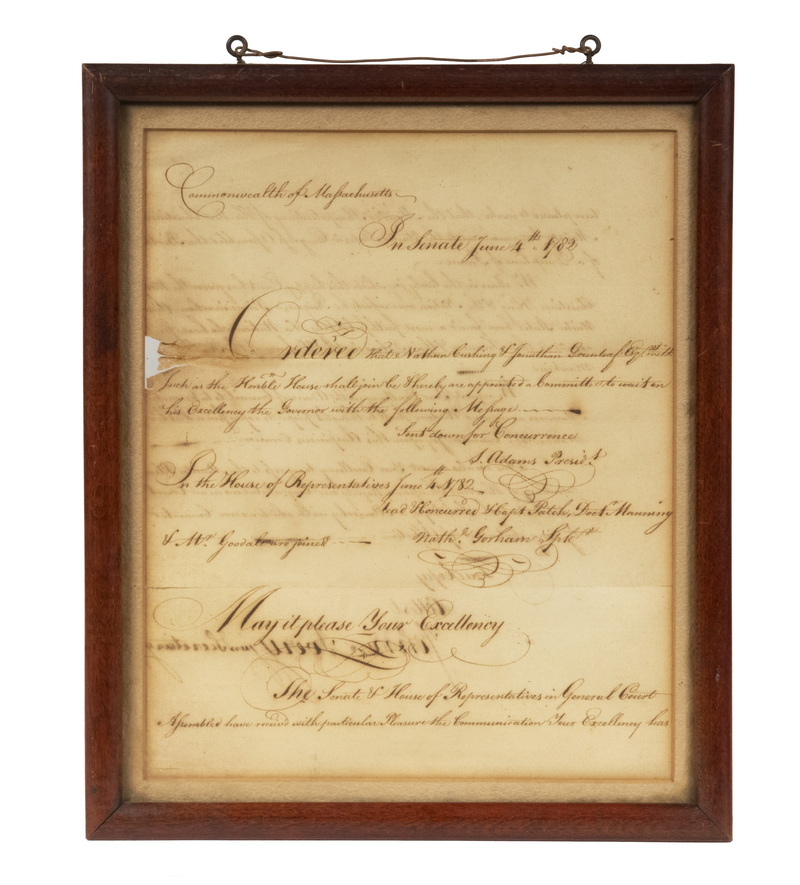 Commonwealth of Massachusetts
In Senate June 4th. 1782
Ordered that Nathan Cushing & Jonathan Greenleaf Esqrs. with
such as the Honble House shall join be & hereby are appointed a Committe to wait on
his Excellency the Governor with the following Message
Sent down for Concurrence
S. Adams Presidt
In the House of Representatives June 4. 1782
Read & Concurred & Capt Patch, Doctr Manning
& Mr. Goodale are joined
Nathl. Gorham Spkr
May it please Your Excellency
The Senate & House of Representatives in General Court
Assembled have receivd with particular Pleasure the Communication Your Excellency has